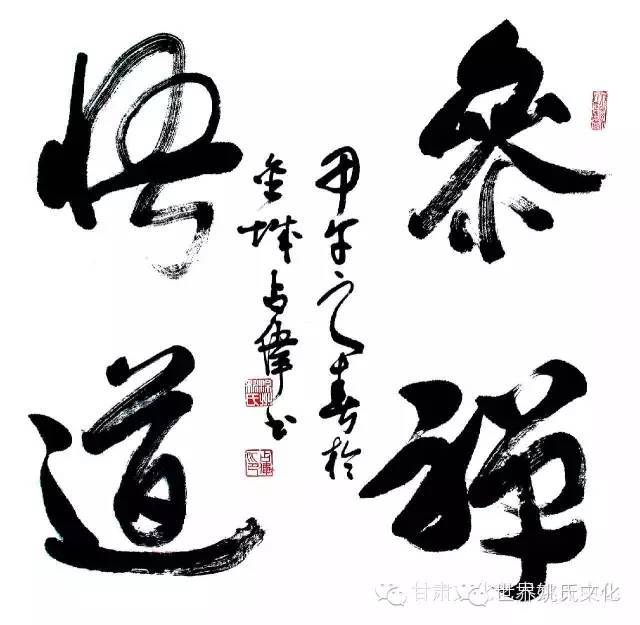 參禪
悟道
甲午之春於
金城占偉书
甘肃
世界姚氏文化